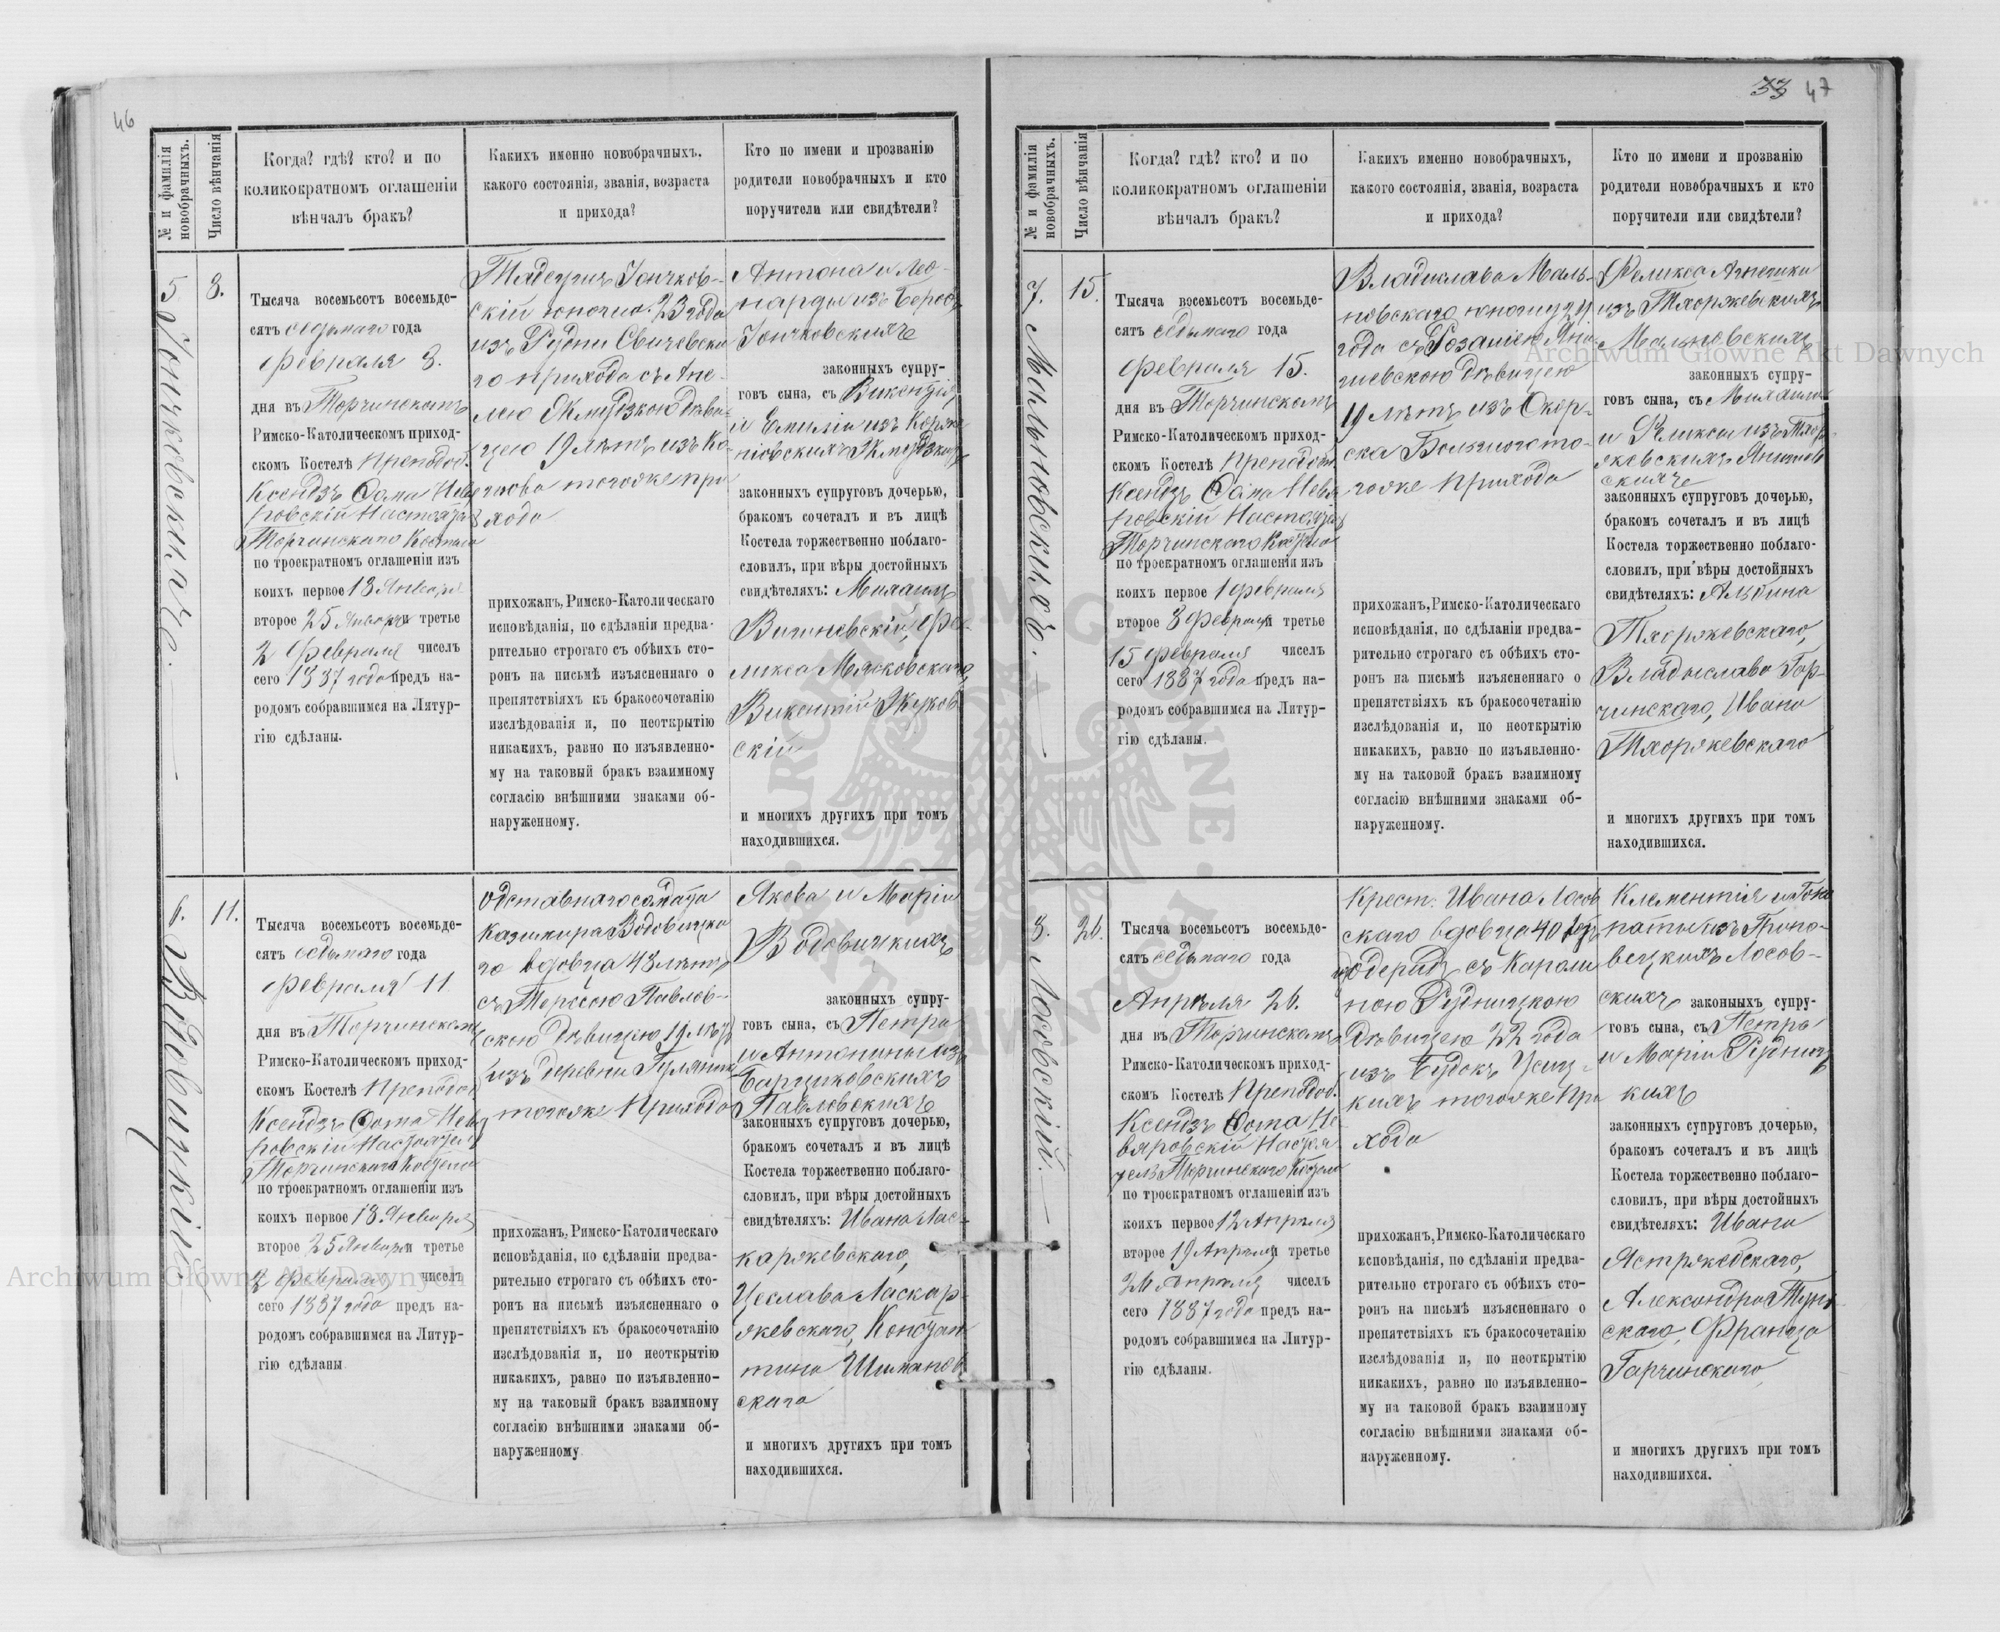 46
№ и фамилія новобрачныхъ.
Число вѣнчанія
Когда? гдѣ? кто? и по
коликократномъ оглашеніи
вѣнчалъ бракъ?
Какихъ именно новобрачныхъ.
какого состоянія, званія, возраста
и прихода?
Кто по имени и прозванію
родители новобрачныхъ и кто
поручители или свидѣтели?
5
8.
Тысяча восемьсотъ восемьде-
сятъ седьмаго года
февраля 8.
дня въ Торчинскомъ
Римско-Католическомъ приход-
скомъ Костелѣ Преподоб.
Ксендзъ Фома Нев
ровскій Настоятел
Торчинскаго Костела
по троекратномъ оглашеніи изъ
коихъ первое 18 Января
второе 25 Января и третье
2 февраля чиселъ
сего 1887 года предъ на-
родомъ собравшимся на Литур-
гію сдѣланы.
скій юноша 23 года
изъ Рудни
го прихода съ Ане-
лею Жмудзкою дѣви-
цею 19 лѣтъ изъ
тогоже при
хода
прихожанъ, Римско-Католическаго
исповѣданія, по сдѣланіи предва-
рительно строгаго съ обѣихъ сто-
ронъ на письмѣ изъясненнаго о
препятствіяхъ къ бракосочетанію
изслѣдованія и, по неоткрытію
никакихъ, равно по изъявленно-
му на таковый бракъ взаимному
согласію внѣшними знаками об-
наруженному.
Антона и Лео-
нарды изъ
законныхъ супру-
говъ сына, съ Викентія
и Емиліи изъ
Жмудзкихъ
законныхъ супруговъ дочерью,
бракомъ сочеталъ и въ лицѣ
Костела торжественно поблаго-
словилъ, при вѣры достойныхъ
свидѣтеляхъ: Михаилъ
Вишневскій, Фе-
ликса Мясковскаго,
Викентій Жуков
скій
и многихъ другихъ при томъ
находившихся.
6.
Водовицкій
11.
Тысяча восемьсотъ восемьде-
сятъ седьмаго года
февраля 11
дня въ Торчинскомъ
Римско-Католическомъ приход-
скомъ Костелѣ Преподоб
Ксендзъ Фома Нев
ровскій Настоятел
Торчинскаго Костела
по троекратномъ оглашеніи изъ
коихъ первое 18 Января
второе 25 Января и третье
2 февраля чиселъ
сего 1887 года предъ на-
родомъ собравшимся на Литур-
гію сдѣланы
отставнаго солдата
Казимира Водовицка
го вдовца 43 лѣтъ
съ Павлов-
скою дѣвицею 19 лѣтъ
изъ деревни
тогоже Прихода
прихожанъ, Римско-Католическаго
исповѣданія, по сдѣланіи предва-
рительно строгаго съ обѣихъ сто-
ронъ на письмѣ изъясненнаго о
препятствіяхъ къ бракосочетанію
изслѣдованія и, по неоткрытію
никакихъ, равно по изъявленно-
му на таковый бракъ взаимному
согласію внѣшними знаками об-
наруженному.
Якова и Маріи
Водовицкихъ
законныхъ супру-
говъ сына, съ Петра
и Антонины изъ
Барщиковскихъ
Павловскихъ
законныхъ супруговъ дочерью,
бракомъ сочеталъ и въ лицѣ
Костела торжественно поблаго-
словилъ, при вѣры достойныхъ
свидѣтеляхъ: Ивана Лас-
каржевскаго,
Цеслава Ласкар-
жевскаго, Констан
тина Шиманов
скаго
и многихъ другихъ при томъ
находившихся.
33 47
№ и фамилія новобрачныхъ.
Число вѣнчанія
Когда? гдѣ? кто? и по
коликократномъ оглашеніи
вѣнчалъ бракъ?
Какихъ именно новобрачныхъ,
какого состоянія, званія, возраста
и прихода?
Кто по имени и прозванію
родители новобрачныхъ и кто
поручители или свидѣтели?
7.
Мильновскихъ.
15.
Тысяча восемьсотъ восемьде-
сятъ седьмаго года
февраля 15.
дня въ Торчинскомъ
Римско-Католическомъ приход-
скомъ Костелѣ Преподоб.
Ксендзъ Фома Невя
ровскій Настоятел
Торчинскаго Костела
по троекратномъ оглашеніи изъ
коихъ первое 1 февраля
второе 8 февраля и третье
15 февраля чиселъ
сего 1887 года предъ на-
родомъ собравшимся на Литур-
гію сдѣланы.
Владислава Миль-
новскаго юношу 24
года съ Розаліею
дѣвицею
19 лѣтъ изъ Скор-
ска Большого то-
гоже прихода
прихожанъ, Римско-Католическаго
исповѣданія, по сдѣланіи предва-
рительно строгаго съ обѣихъ сто-
ронъ на письмѣ изъясненнаго о
препятствіяхъ къ бракосочетанію
изслѣдованія и, по неоткрытію
никакихъ, равно по изъявленно-
му на таковой бракъ взаимному
согласію внѣшними знаками об-
наруженному.
Феликса Агнешки
изъ Тхоржевскихъ
Мильновскихъ
законныхъ супру-
говъ сына, съ Михаила
и Феликсы изъ Тхор-
жевскихъ
скихъ
законныхъ супруговъ дочерью,
бракомъ сочеталъ и въ лицѣ
Костела торжественно поблаго-
словилъ, при вѣры достойныхъ
свидѣтеляхъ: Альбина
Тхоржевскаго,
Владыслава Гор-
чинскаго, Ивана
Тхоржевскаго
и многихъ другихъ при томъ
находившихся.
8.
Лосовскій.
26.
Тысяча восемьсотъ восемьде-
сятъ седьмаго года
Апрѣля 26.
дня въ Торчинскомъ
Римско-Католическомъ приход-
скомъ Костелѣ Преподоб.
Ксендзъ Фома Не
вяровскій Настоя
тель Торчинскаго Костела
по троекратномъ оглашеніи изъ
коихъ первое 12 Апрѣля
второе 19 Апрѣля и третье
26 Апрѣля чиселъ
сего 1887 года предъ на-
родомъ собравшимся на Литур-
гію сдѣланы.
Крест. Ивана Лосов
скаго вдовца 40 лѣтъ
съ Кароли
ною Рудницкою
дѣвицею 22 года
изъ Будокъ Усиц-
кихъ тогоже При
хода
прихожанъ, Римско-Католическаго
исповѣданія, по сдѣланіи предва-
рительно строгаго съ обѣихъ сто-
ронъ на письмѣ изъясненнаго о
препятствіяхъ къ бракосочетанію
изслѣдованія и, по неоткрытію
никакихъ, равно по изъявленно-
му на таковой бракъ взаимному
согласію внѣшними знаками об-
наруженному.
Клементія и
изъ
Лосов-
скихъ законныхъ супру-
говъ сына, съ Петра
и Маріи Рудниц
кихъ
законныхъ супруговъ дочерью,
бракомъ сочеталъ и въ лицѣ
Костела торжественно поблаго-
словилъ, при вѣры достойныхъ
свидѣтеляхъ: Ивана
Ястржебскаго,
Александра
скаго, Франца
Горчинскаго
и многихъ другихъ при томъ
находившихся.
Archiwum Główne Akt Dawnych
Archiwum Główne Akt Dawnych